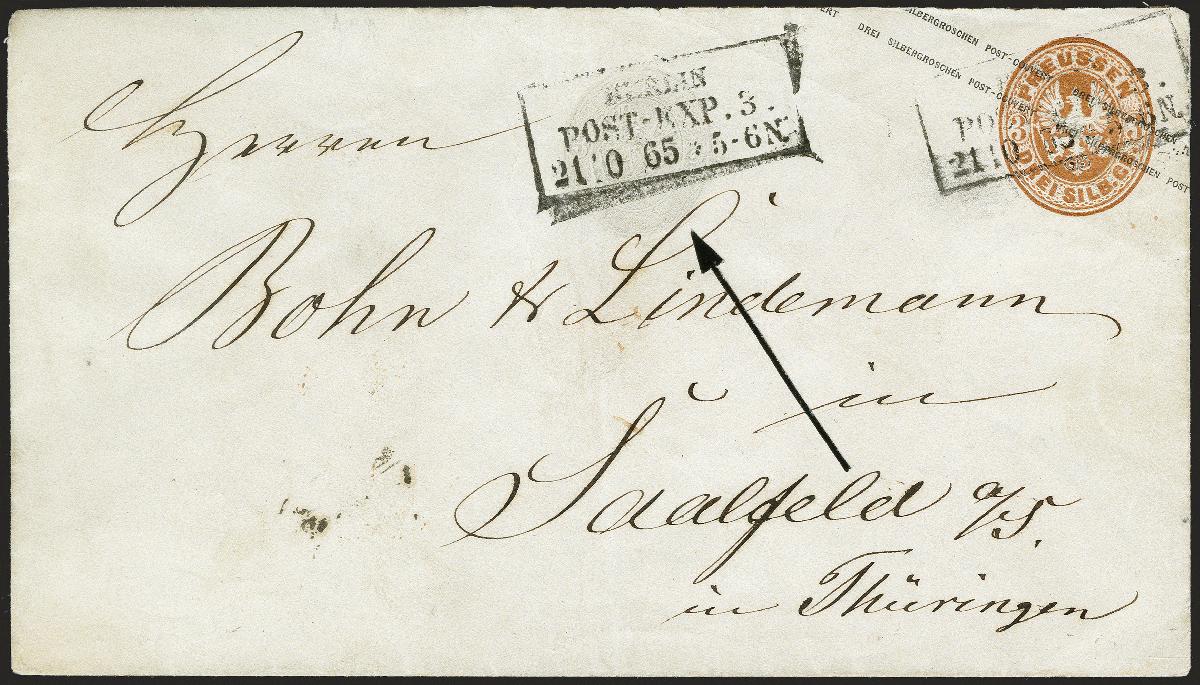 BERLIN
POST-EXP. 3.
21 10 65 * 5-6 N.
DREI SILBERGROSCHEN POST-COUVERT
SILBERGROSCHEN POST-COUVERT
PREUSSEN
3 3
DREI SILB.GR.
21 10
N.
Herren
Bohn & Lindemann
in
Saalfeld a/S.
in Thüringen